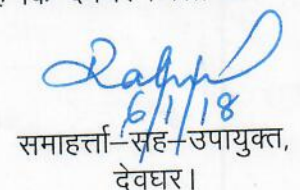 6/1/18
समाहर्त्ता–सह–उपायुक्त,
देवघर।